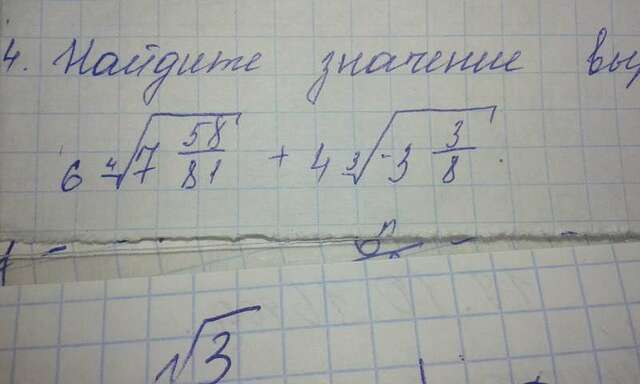 4. Найдите значение
6 ∜(7 58/81) + 4 ∛(-3 3/8)
√3